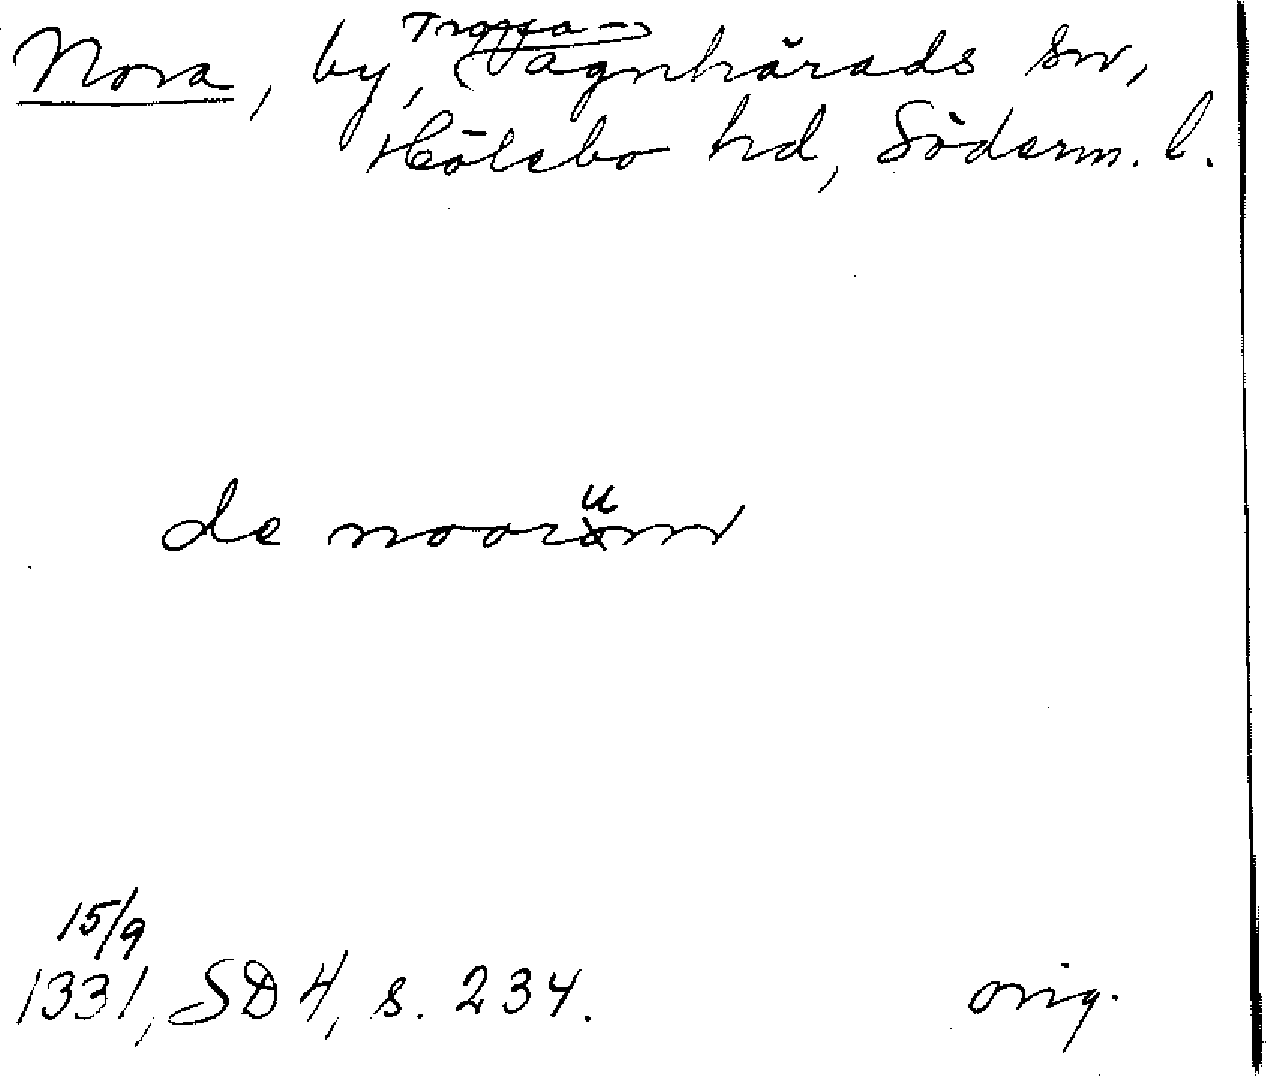 Nora, by, Trosa-Vagnhärads sn,
Hölebo hd, Söderm. l.
de noorum
15/9
1331, SD 4, s. 234.
orig.